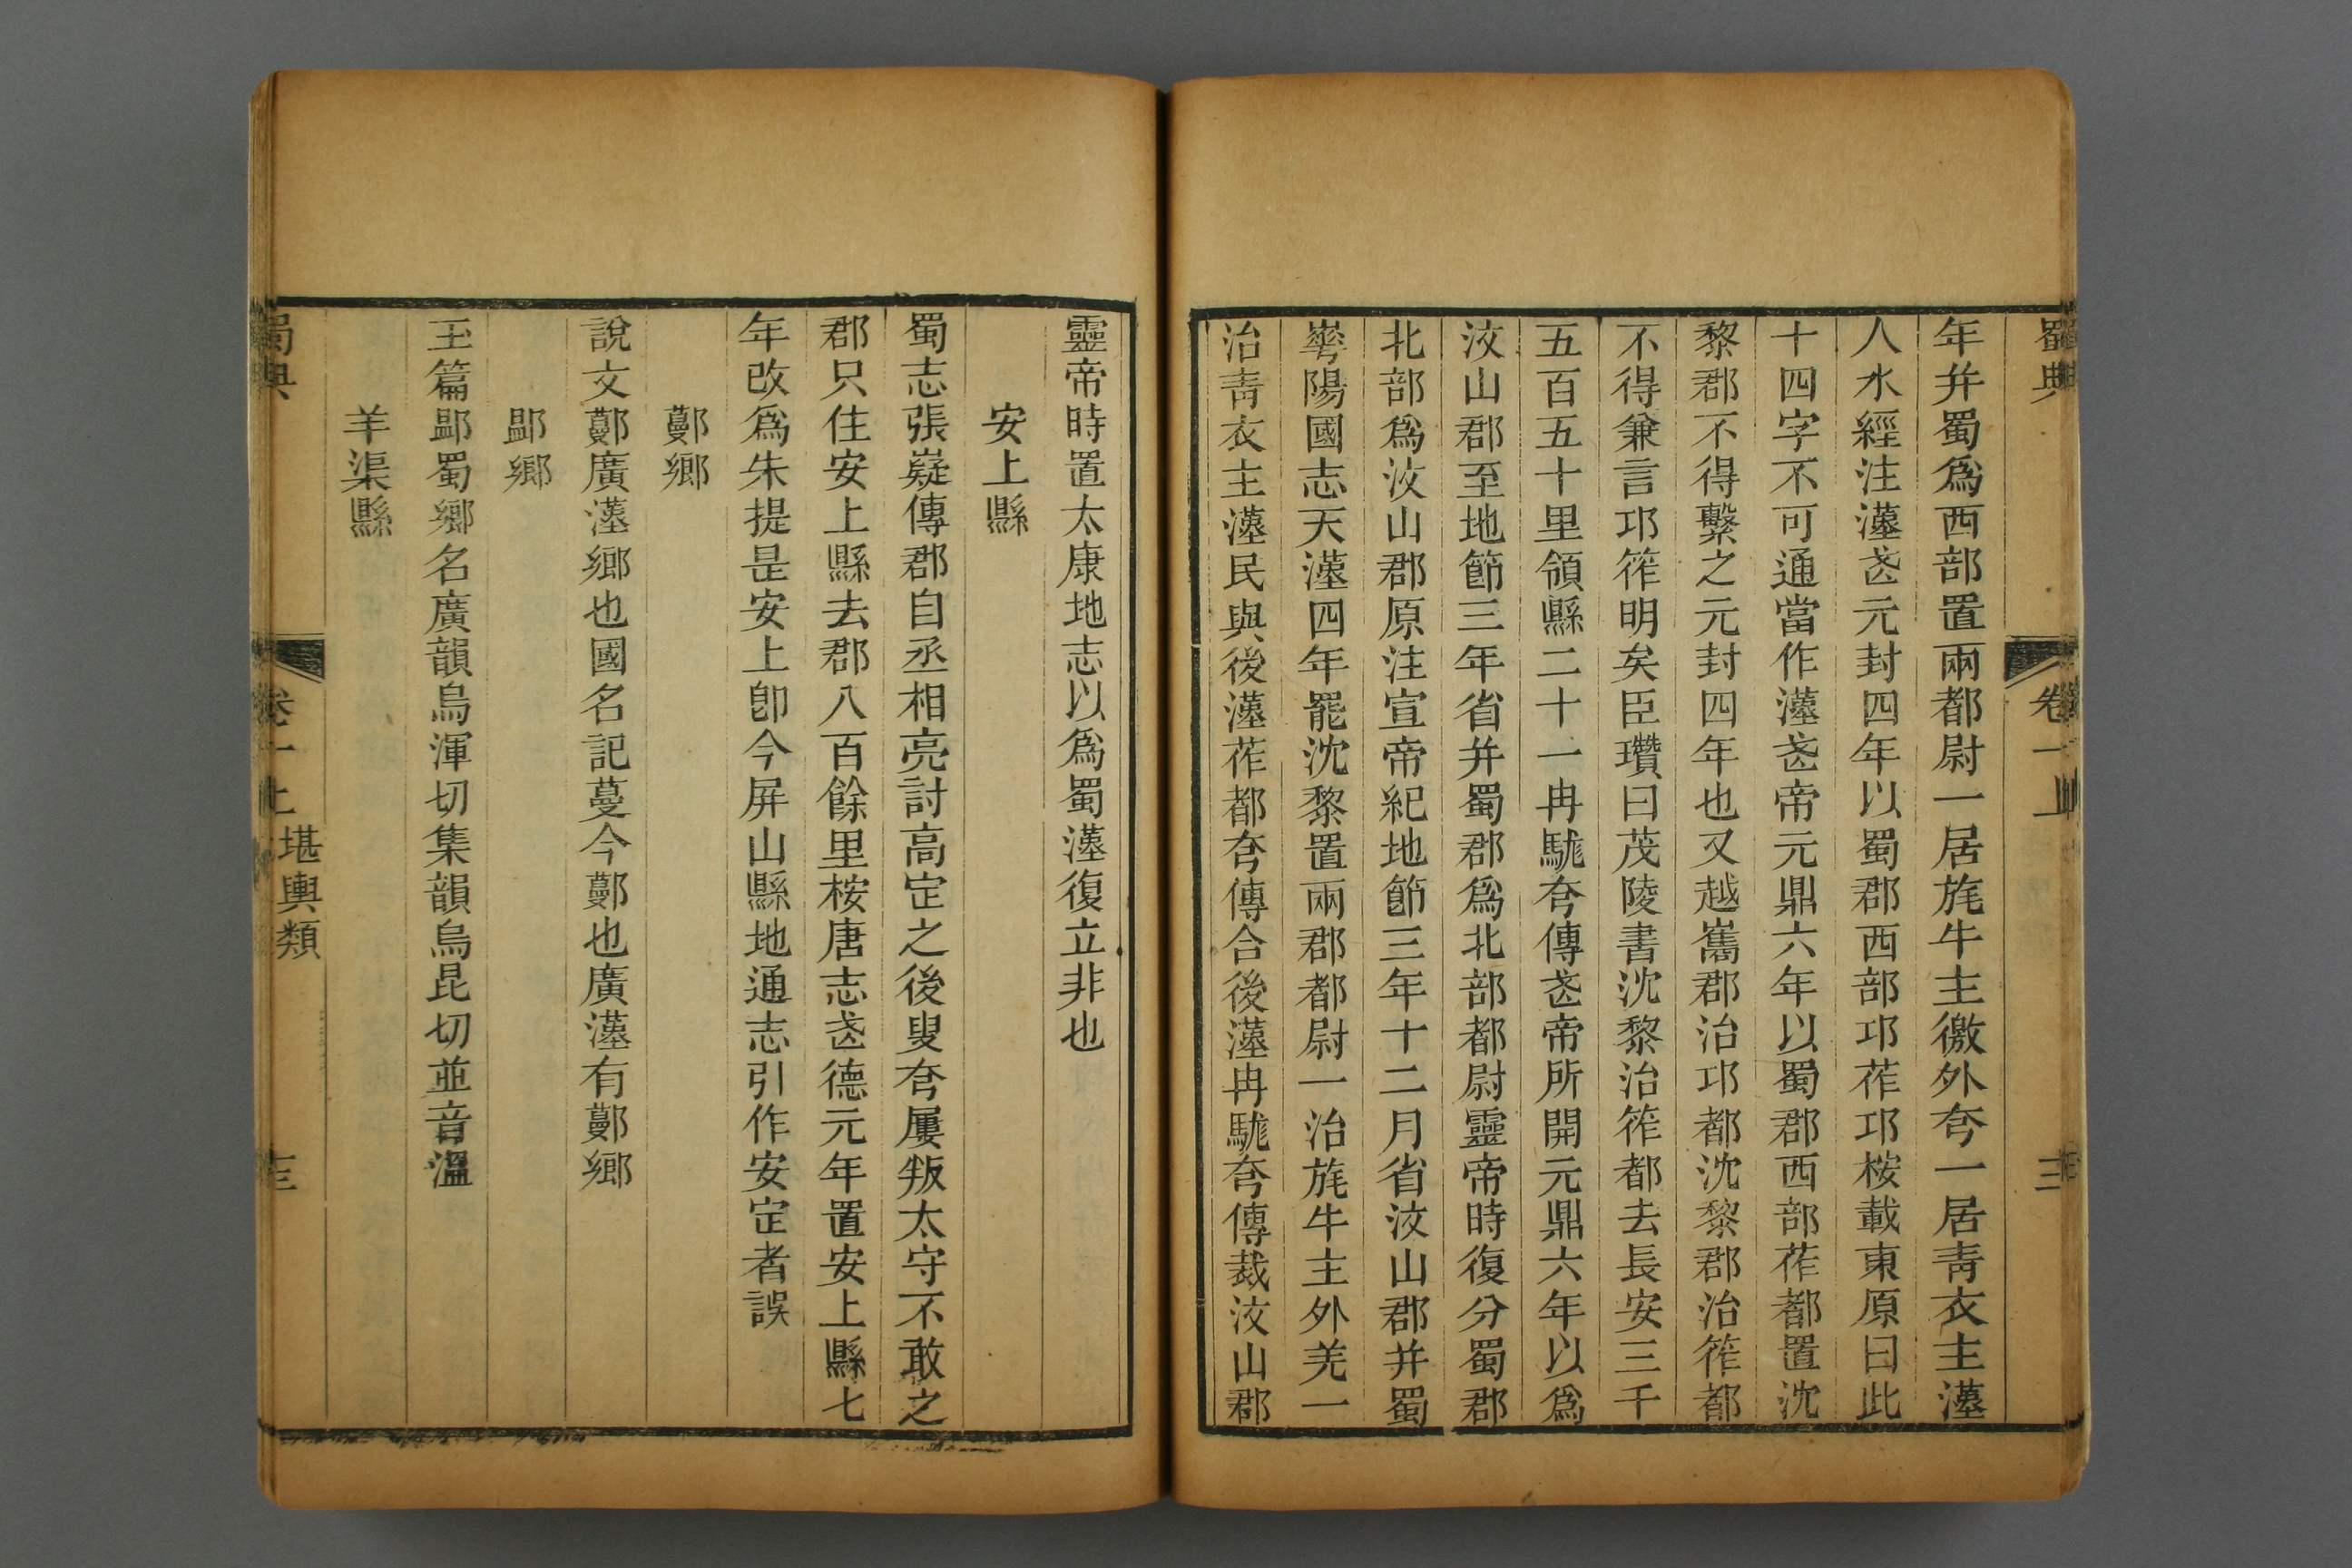 蜀典
卷一上
三
年幷蜀爲西部置兩都尉一居旄牛主徼外夸一居靑衣主漢
人水經注漢武元封四年以蜀郡西部邛莋邛桉載東原曰此
十四字不可通當作漢武帝元鼎六年以蜀郡西部莋都置沈
黎郡不得繫之元封四年也又越巂郡治邛都沈黎郡治筰都
不得兼言邛筰明矣臣瓚曰茂陵書沈黎治筰都去長安三千
五百五十里領縣二十一冉駹夸傳武帝所開元鼎六年以爲
汶山郡至地節三年省幷蜀郡爲北部都尉靈帝時復分蜀郡
北部爲汶山郡原注宣帝紀地節三年十二月省汶山郡幷蜀
華陽國志天漢四年罷沈黎置兩郡都尉一治旄牛主外羌一
治靑衣主漢民與後漢莋都夸傳合後漢冉駹夸傳裁汶山郡
靈帝時置太康地志以爲蜀漢復立非也
安上縣
蜀志張嶷傳郡自丞相亮討高定之後叟夸屢叛太守不敢之
郡只住安上縣去郡八百餘里桉唐志武德元年置安上縣七
年改爲朱提是安上卽今屏山縣地通志引作安定者誤
鄤鄉
說文鄤廣漢鄉也國名記蔓今鄤也廣漢有鄤鄉
䣖鄉
玉篇䣖蜀鄉名廣韻烏渾切集韻烏昆切並音溫
羊渠縣
蜀典
卷一上
堪輿類
三